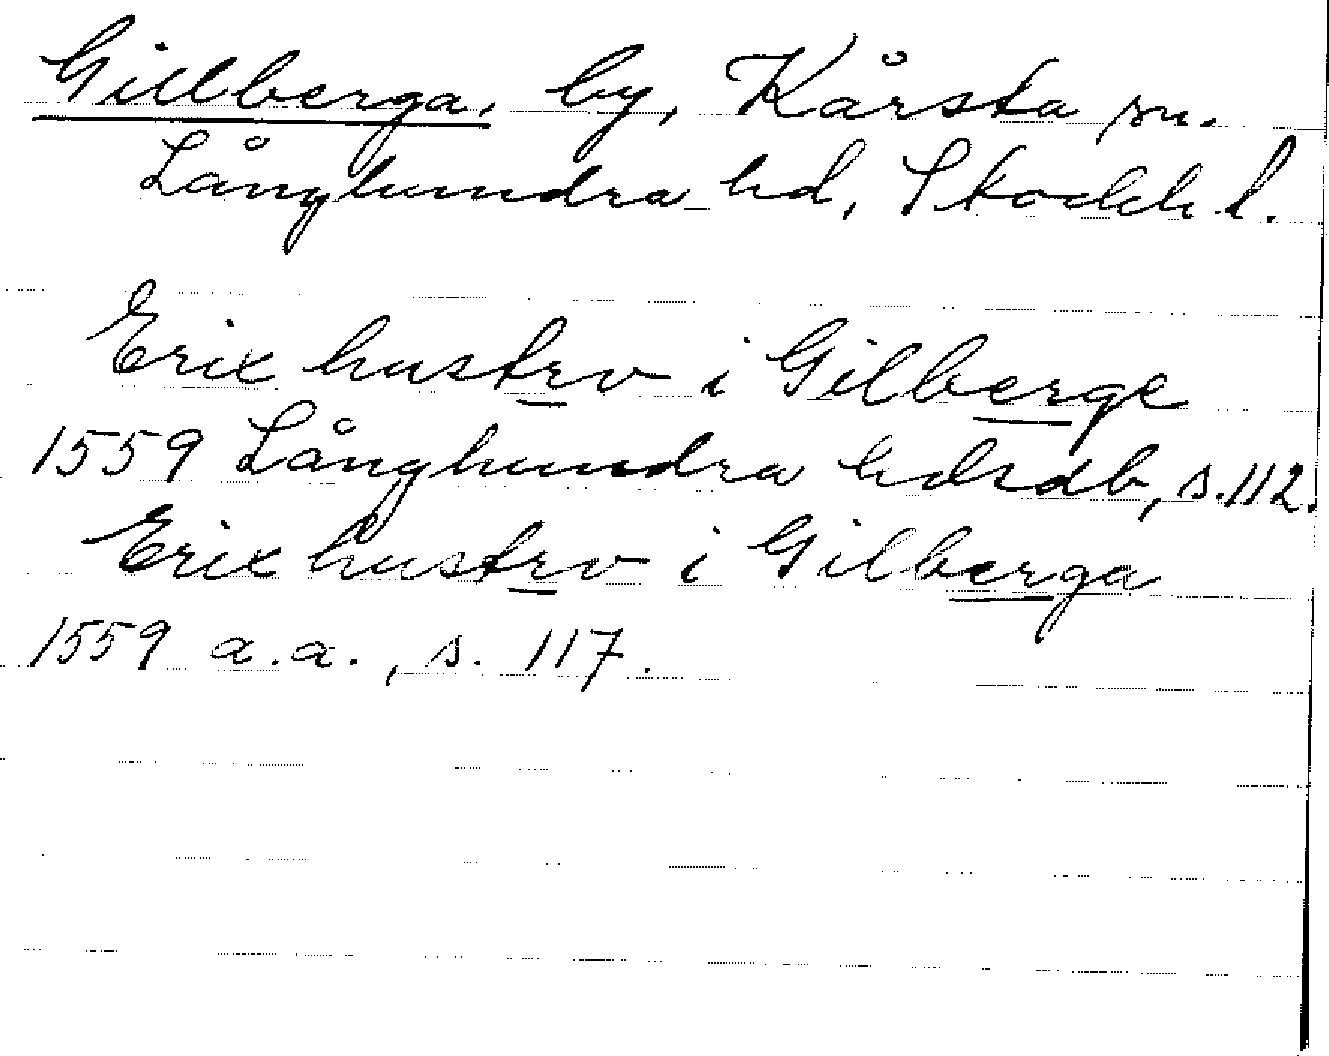 Gillberga, by, Kårsta sn.
Långhundra hd, Stockh. l.
Erix hustrv i Gilberge
1559 Långhundra hdsdb, s. 112.
Erix hustrv i Gilberga
1559 a.a., s. 117.